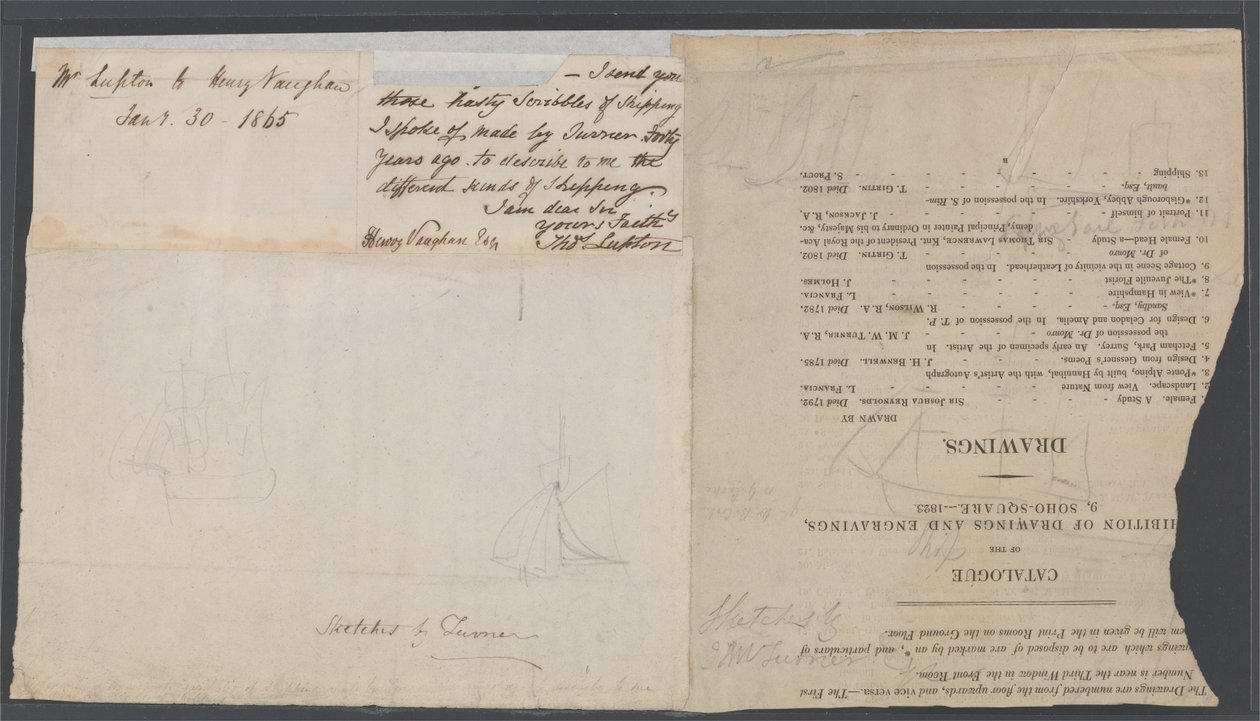 Mr Lupton to Henry Vaughan
Jany. 30 - 1865
— I send you
those hasty Scribbles of Shipping
I spoke of made by Turner Forty
Years ago. to describe to me the
different kinds of Shipping.
I am dear Sir
Yours Faithy
Henry Vaughan Esq Thos Lupton
Sketches by Turner
Sketches by
J M W Turner
Ship
The Drawings are numbered from the floor upwards, and vice versa.—The First
Number is near the Third Window in the Front Room.
wings which are to be disposed of are marked by an *, and particulars of
em will be given in the Print Rooms on the Ground Floor.
CATALOGUE
OF THE
HIBITION OF DRAWINGS AND ENGRAVINGS,
9, SOHO-SQUARE.—1823.
DRAWINGS.
DRAWN BY
. Female. A Study - Sir Joshua Reynolds. Died 1792.
2. Landscape. View from Nature - L. Francia.
3. *Ponte Alpino, built by Hannibal, with the Artist's Autograph
4. Design from Gessner's Poems. - J. H. Benwell. Died 1785.
5. Fetcham Park, Surrey. An early specimen of the Artist. In
the possession of Dr. Monro - J. M. W. Turner, R.A.
6. Design for Celadon and Amelia. In the possession of T. P.
Sandby, Esq. - R. Wilson, R.A. Died 1782.
7. *View in Hampshire - L. Francia.
8. *The Juvenile Florist - J. Holmes.
9. Cottage Scene in the vicinity of Leatherhead. In the possession
of Dr. Monro - T. Girtin. Died 1802.
10. Female Head—a Study - Sir Thomas Lawrence, Knt. President of the Royal Aca-
demy, Principal Painter in Ordinary to his Majesty, &c.
11. Portrait of himself - J. Jackson, R.A.
12. *Gisborough Abbey, Yorkshire. In the possession of S. Rim-
bault, Esq. - T. Girtin. Died 1802.
13. Shipping - S. Prout.
B